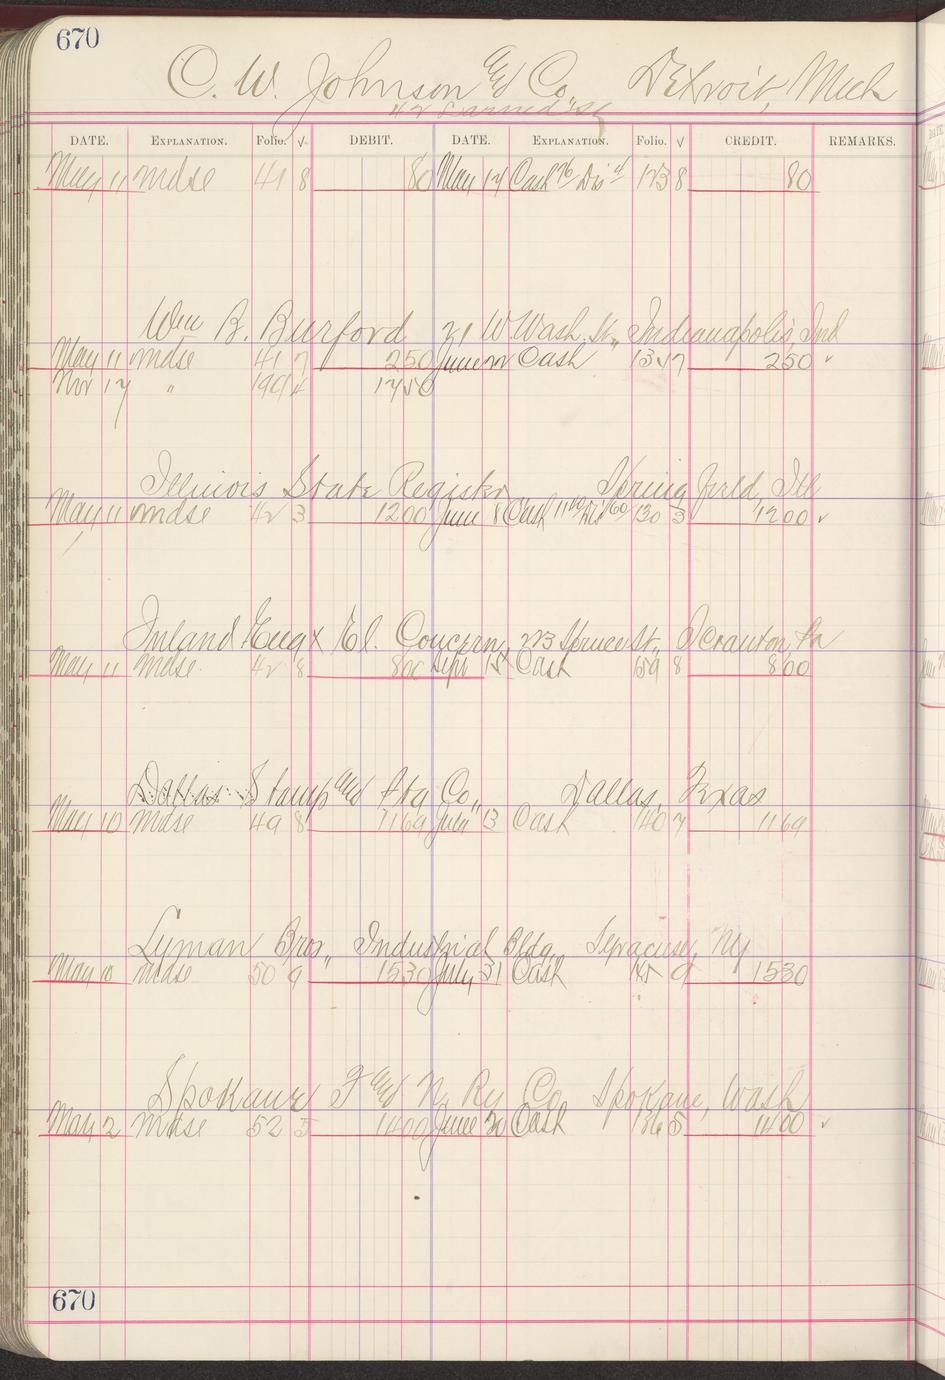 670
C. W. Johnson and Co. Detroit, Mich
42 Larned St
DATE. EXPLANATION. Folio. √ DEBIT. DATE. EXPLANATION. Folio. √ CREDIT. REMARKS.
May 11 mdse 41 8 80 May 14 Cash 76 Dis 4 123 8 80
Wm B. Burford 21 W Wash. St., Indianapolis, Ind
May 11 mdse 41 7 250 June 22 Cash 132 7 250 ✓
Nov 17 " 190 4 1250
Illinois State Register Springfield, Ill
May 11 mdse 42 3 1200 June 8 Cash 1140 Dis 60 130 3 1200 ✓
Inland Eng & El. Concern, 223 Spruce St., Scranton, Pa
May 11 mdse 42 8 800 Sept 15 Cash 159 8 800
Dallas Stamp and Ptg Co., Dallas, Texas
May 10 mdse 49 8 1169 July 13 Cash 140 7 1169
Lyman Bros., Industrial Bldg. Syracuse, Ny
May mdse 50 9 1530 July 31 Cash 9 1530
Spokane F and N. Ry Co. Spokane, Wash
May 2 mdse 52 5 1400 June 30 Cash 136 5 1400 ✓
670